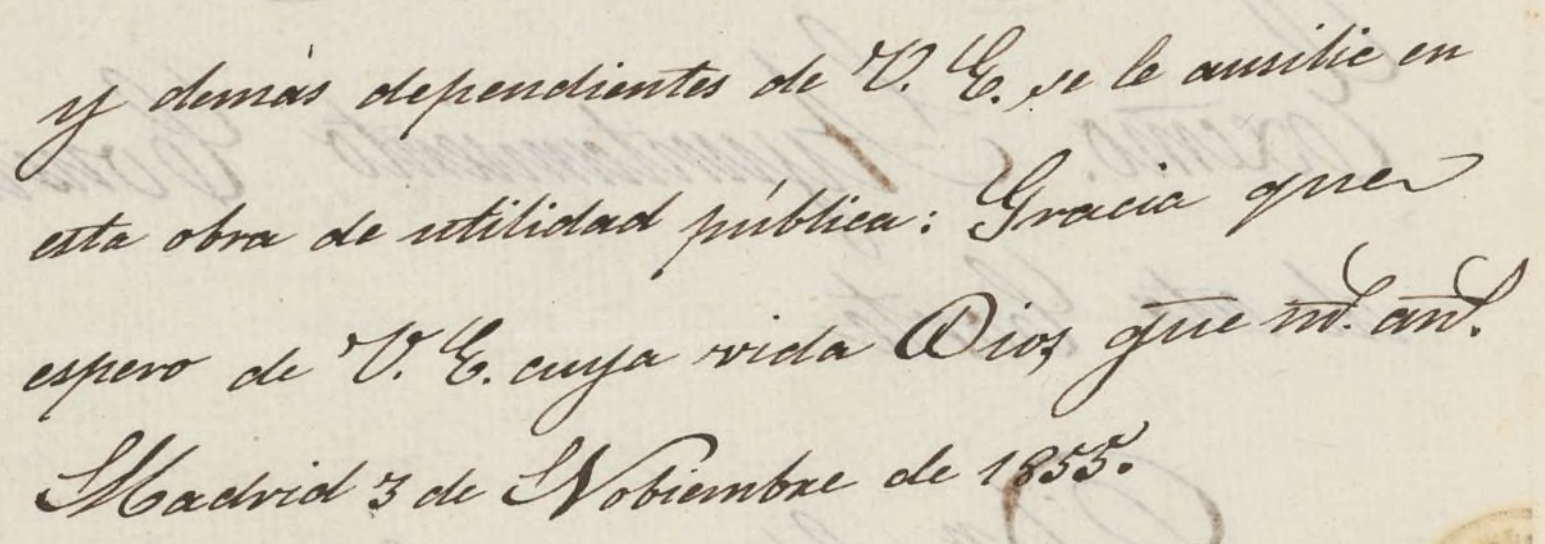 y demás dependientes de V. E. se le ausilie en
esta obra de utilidad pública: Gracia que
espero de V. E. cuya vida Dios gue ms. as.
Madrid 3 de Nobiembre de 1855.